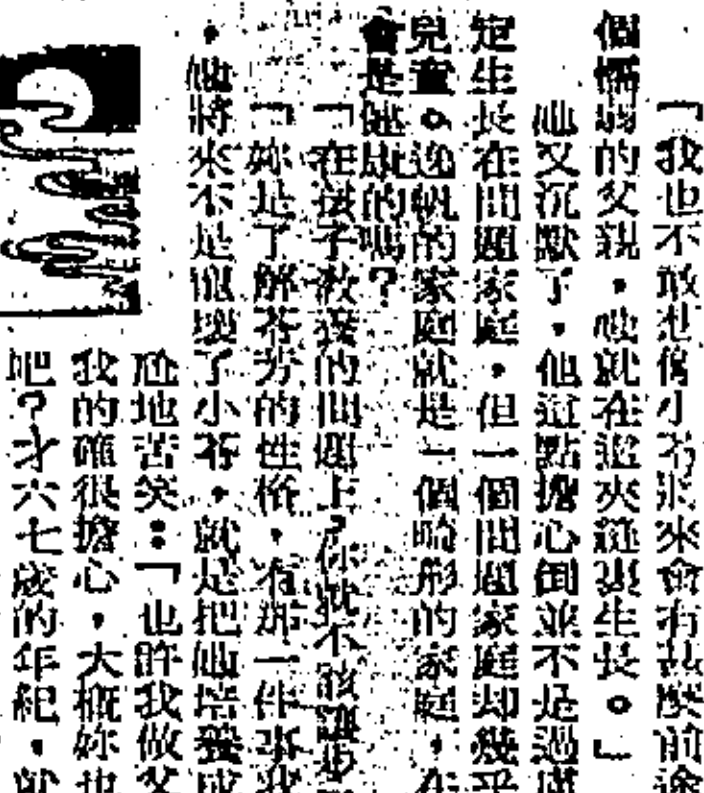 「我也不敢想像小芬將來會有甚麼前途
個懦弱的父親，她就在這夾縫裏生長。」
他又沉默了，他這點擔心倒並不是過慮
定生長在問題家庭，但一個問題家庭却幾乎
兒童。逸帆的家庭就是一個畸形的家庭，在
會是健康的嗎？
「在孩子教養的問題上，你就不該讓步
「妳是了解苓芳的性格，有那一件事我
，她將來不是毀壞了小芬，就是把她培養成
尬地苦笑：「也許我做父
我的確很擔心，大概妳也
吧？才六七歲的年紀，就